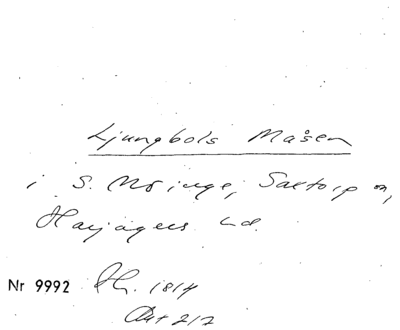 Ljungbols Måsen
i S. Möinge, Saxtorp sn,
Harjagers hd.
Nr 9992 Th. 1814
Akt 212